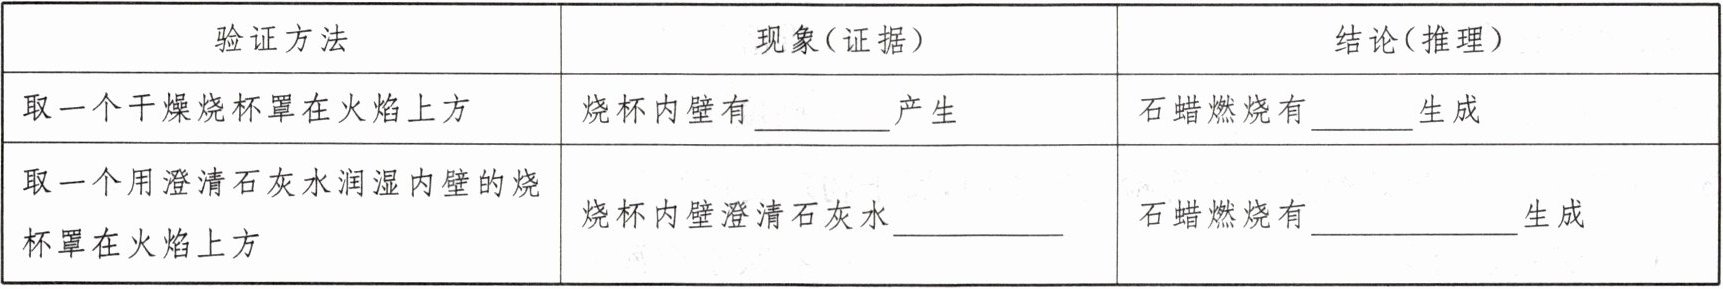 验证方法 现象(证据) 结论(推理)
取一个干燥烧杯罩在火焰上方 烧杯内壁有________产生 石蜡燃烧有______生成
取一个用澄清石灰水润湿内壁的烧
杯罩在火焰上方 烧杯内壁澄清石灰水__________ 石蜡燃烧有____________生成